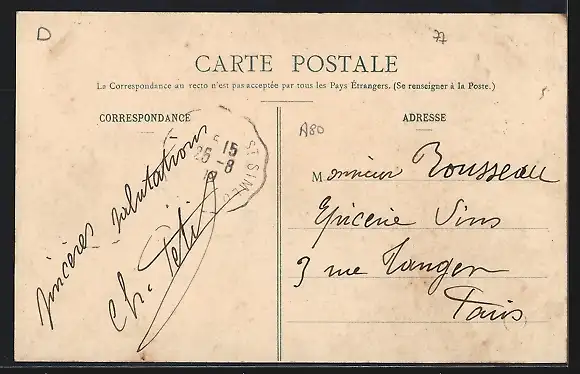 D
77
CARTE POSTALE
La Correspondance au recto n'est pas acceptée par tous les Pays Étrangers. (Se renseigner à la Poste.)
CORRESPONDANCE
ADRESSE
A80
5 15
25-8
ST SIMÉ
sincères salutations
Ch. Petit
Monsieur Rousseau
Epicerie Vins
3 rue Tanger
Paris